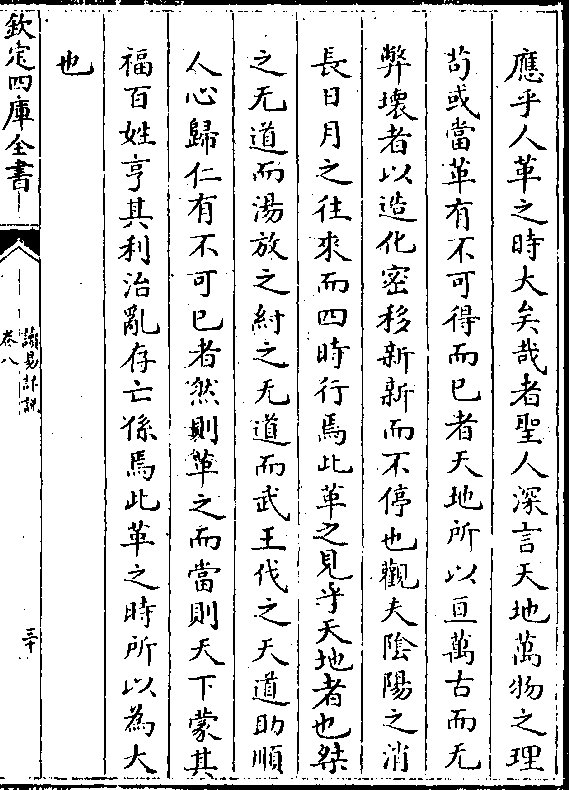 應乎人革之時大矣哉者聖人深言天地萬物之理
苟或當革有不可得而已者天地所以亘萬古而无
弊壞者以造化密移新新而不停也觀夫陰陽之消
長日月之往來而四時行焉此革之見乎天地者也桀
之无道而湯放之紂之无道而武王伐之天道助順
人心歸仁有不可已者然則革之而當則天下蒙其
福百姓亨其利治亂存亡係焉此革之時所以為大
也
欽定四庫全書
讀易詳說
卷八
三十